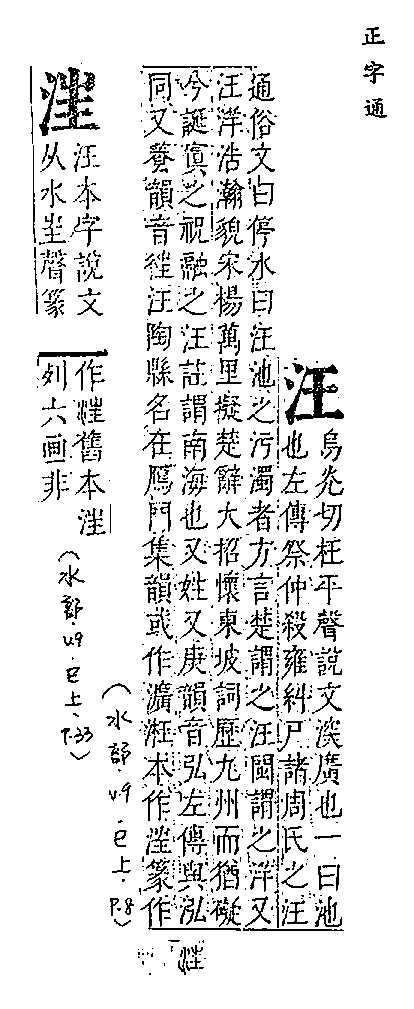 正字通
汪
烏光切枉平聲說文深廣也一曰池
也左傳祭仲殺雍糾尸諸周氏之汪
通俗文曰停水曰汪池之汚濁者方言楚謂之汪閩謂之洋又
汪洋浩瀚貌宋楊萬里擬楚辭大招懷東坡詞歷九州而猶礙
兮誕寘之祝融之汪註謂南海也又姓又庚韻音弘左傳與泓
同又養韻音徃汪陶縣名在鴈門集韻或作瀇𣶃本作𣴠篆作
(水部.v9.巳上.P.8)
𣴠
汪本字說文
从水㞷聲篆
作𣴠舊本𣴠
列六画非
(水部.v9.巳上.P.33)